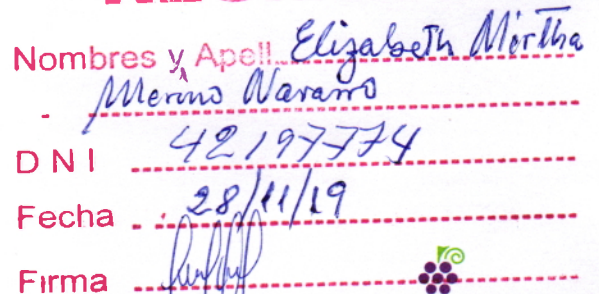 Nombres y Apell. Elizabeth Mirtha
Merino Navarro
DNI 42197774
Fecha 28/11/19
Firma